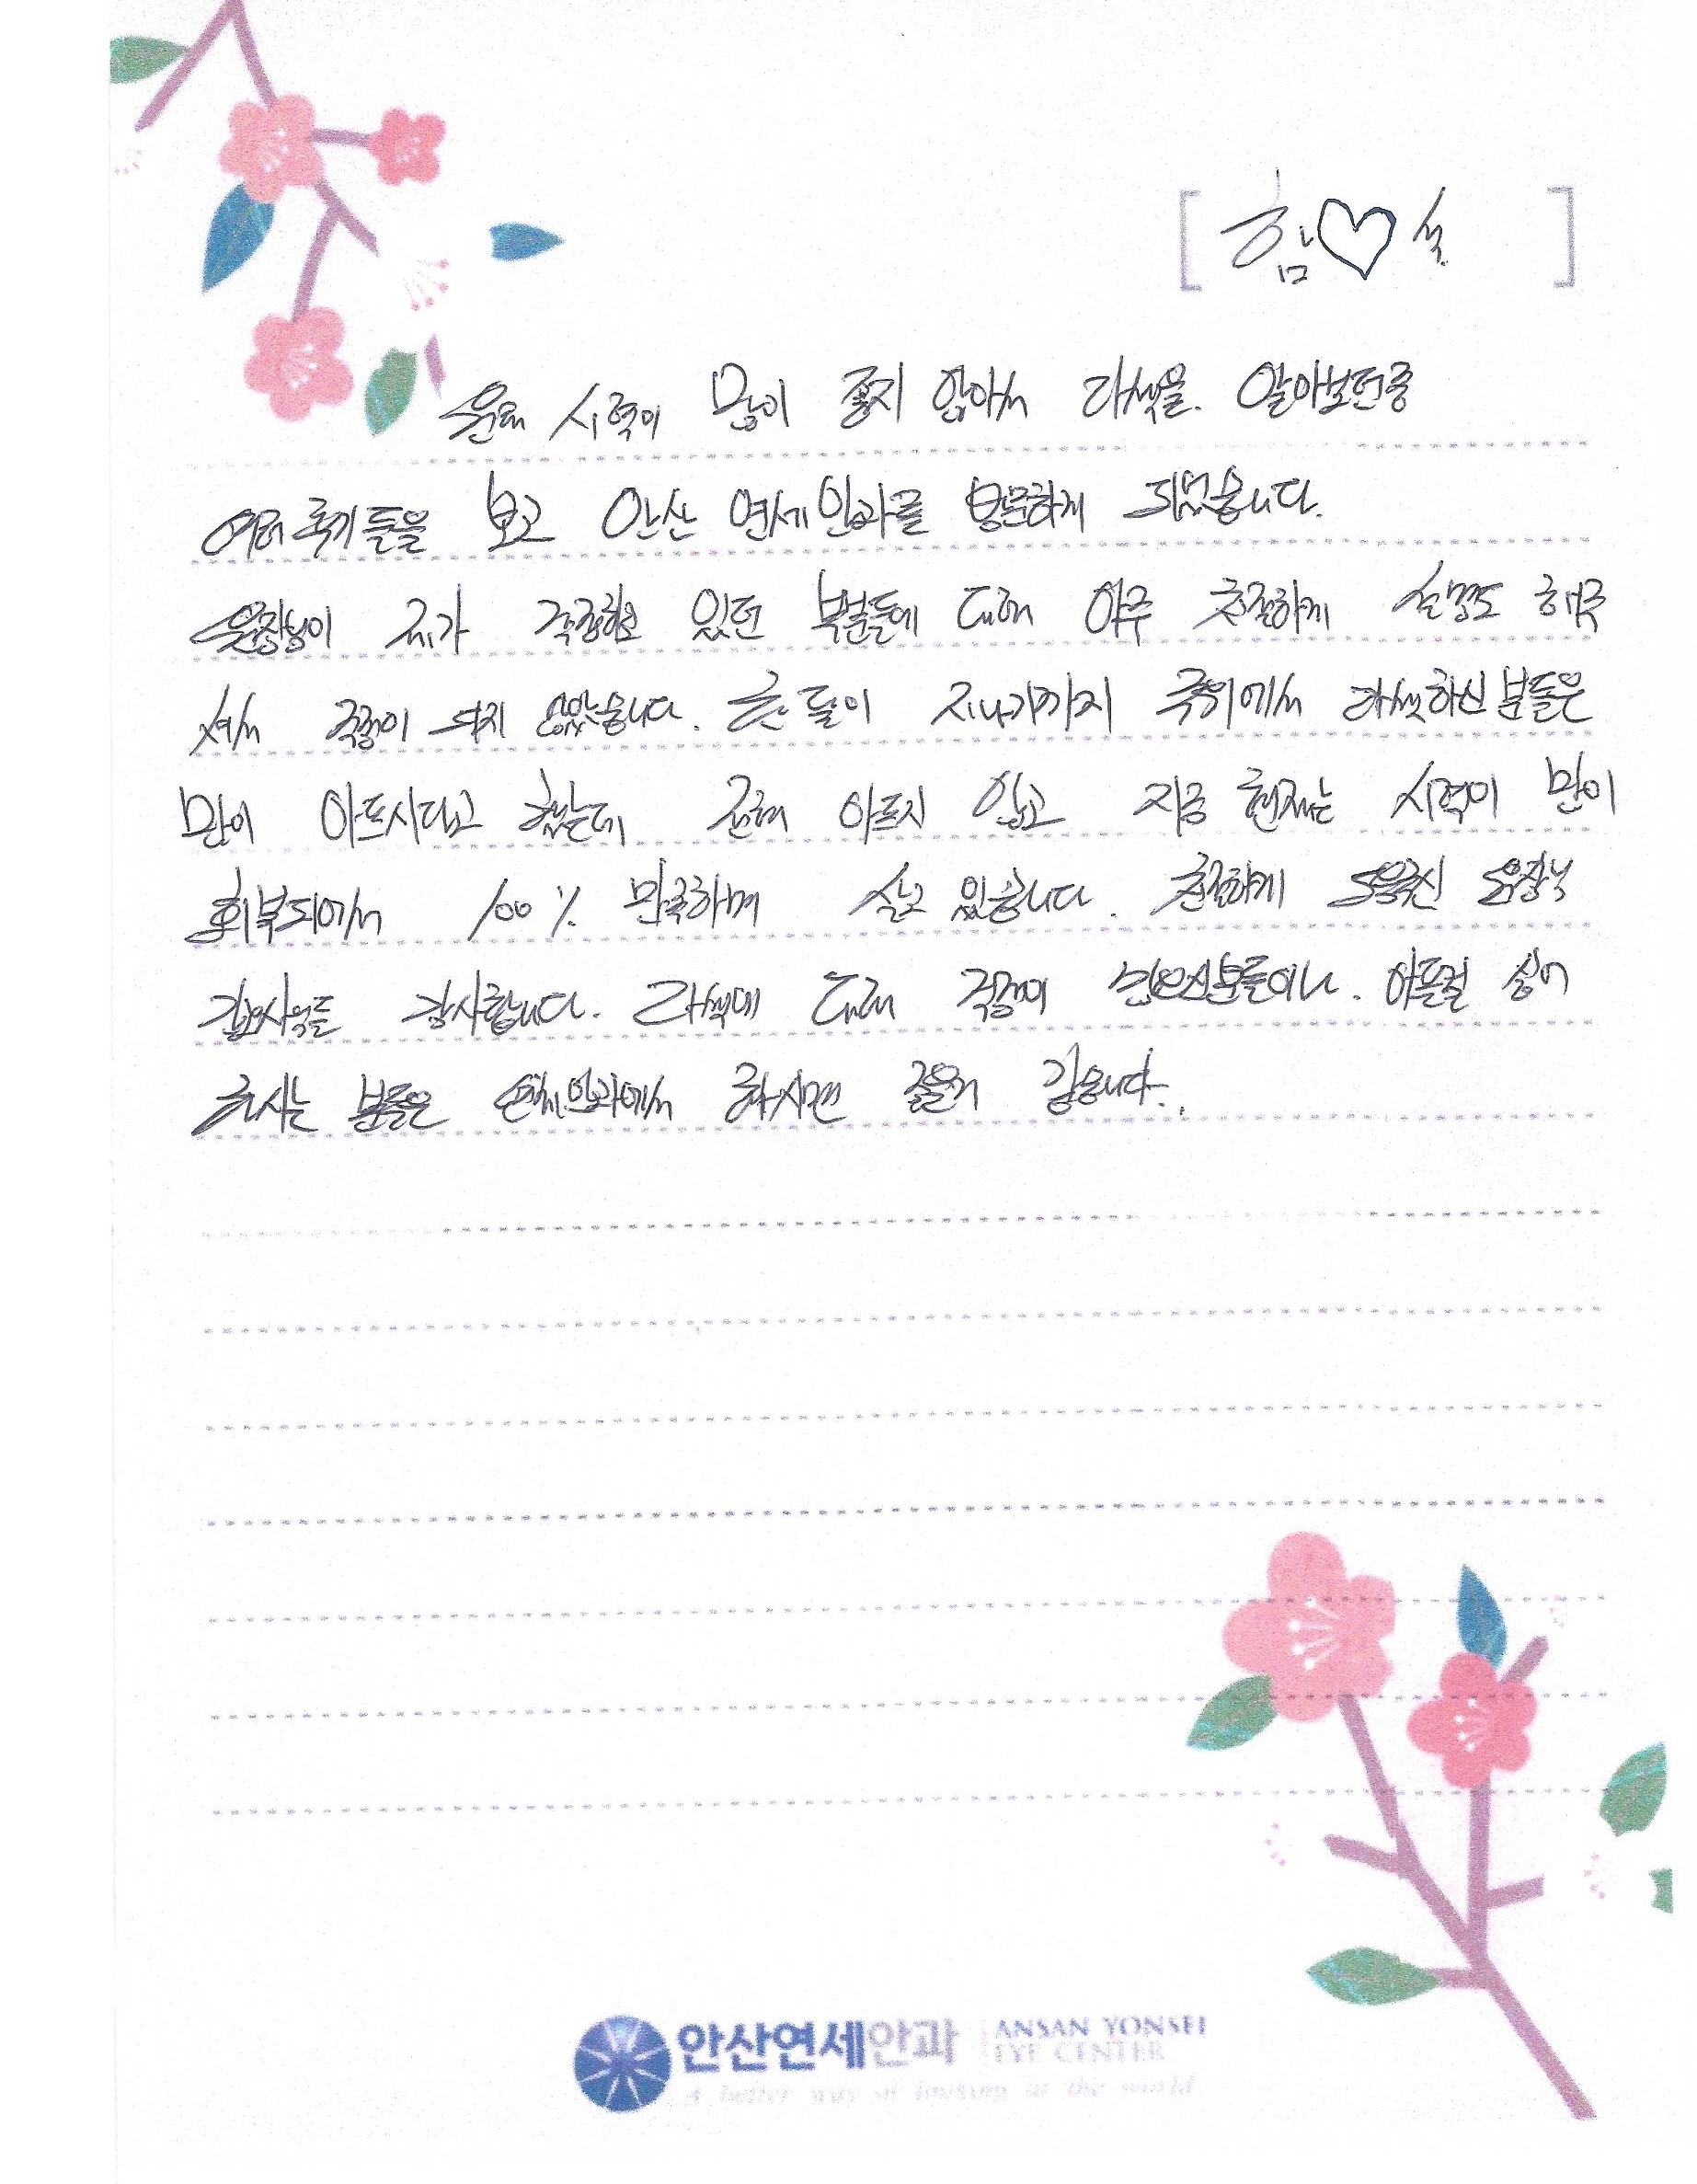 함♡식
원래 시력이 많이 좋지 않아서 라섹을 알아보던중
여러 후기들을 보고 안산 연세안과를 방문하게 되었습니다.
원장님이 제가 걱정하고 있던 부분들에 대해 아주 친절하게 설명도 해주
셔서 걱정이 되지 않았습니다. 큰 돌이 지나기까지 주위에서 라섹하신분들은
많이 아프시다고 했는데 전혀 아프지 않고 지금 현재는 시력이 많이
회복되어서 100% 만족하며 살고 있습니다. 친절하게 도와주신 원장님
간호사님들 감사합니다. 라섹에 대해 걱정이 많으신분들이나. 아픈걸 싫어
하시는 분들은 연세안과에서 하시면 좋을거 같습니다.
안산연세안과 ANSAN YONSEI EYE CENTER
A better way of looking at the world